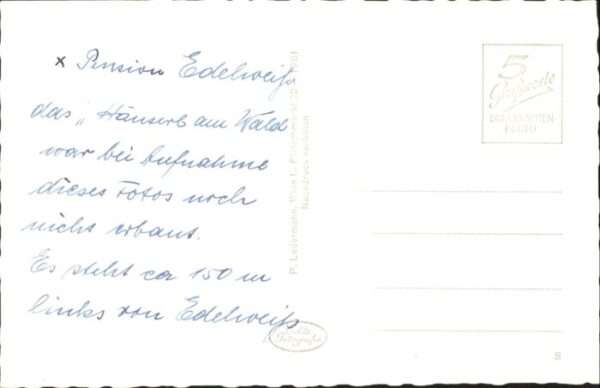 x Pension Edelweiß
das „Häuserl am Wald
war bei Aufnahme
dieses Fotos noch
nicht erbaut.
Es steht ca 150 m
links von Edelweiß
P. Ledermann, Wien I.,
Nachdruck verboten
5
B